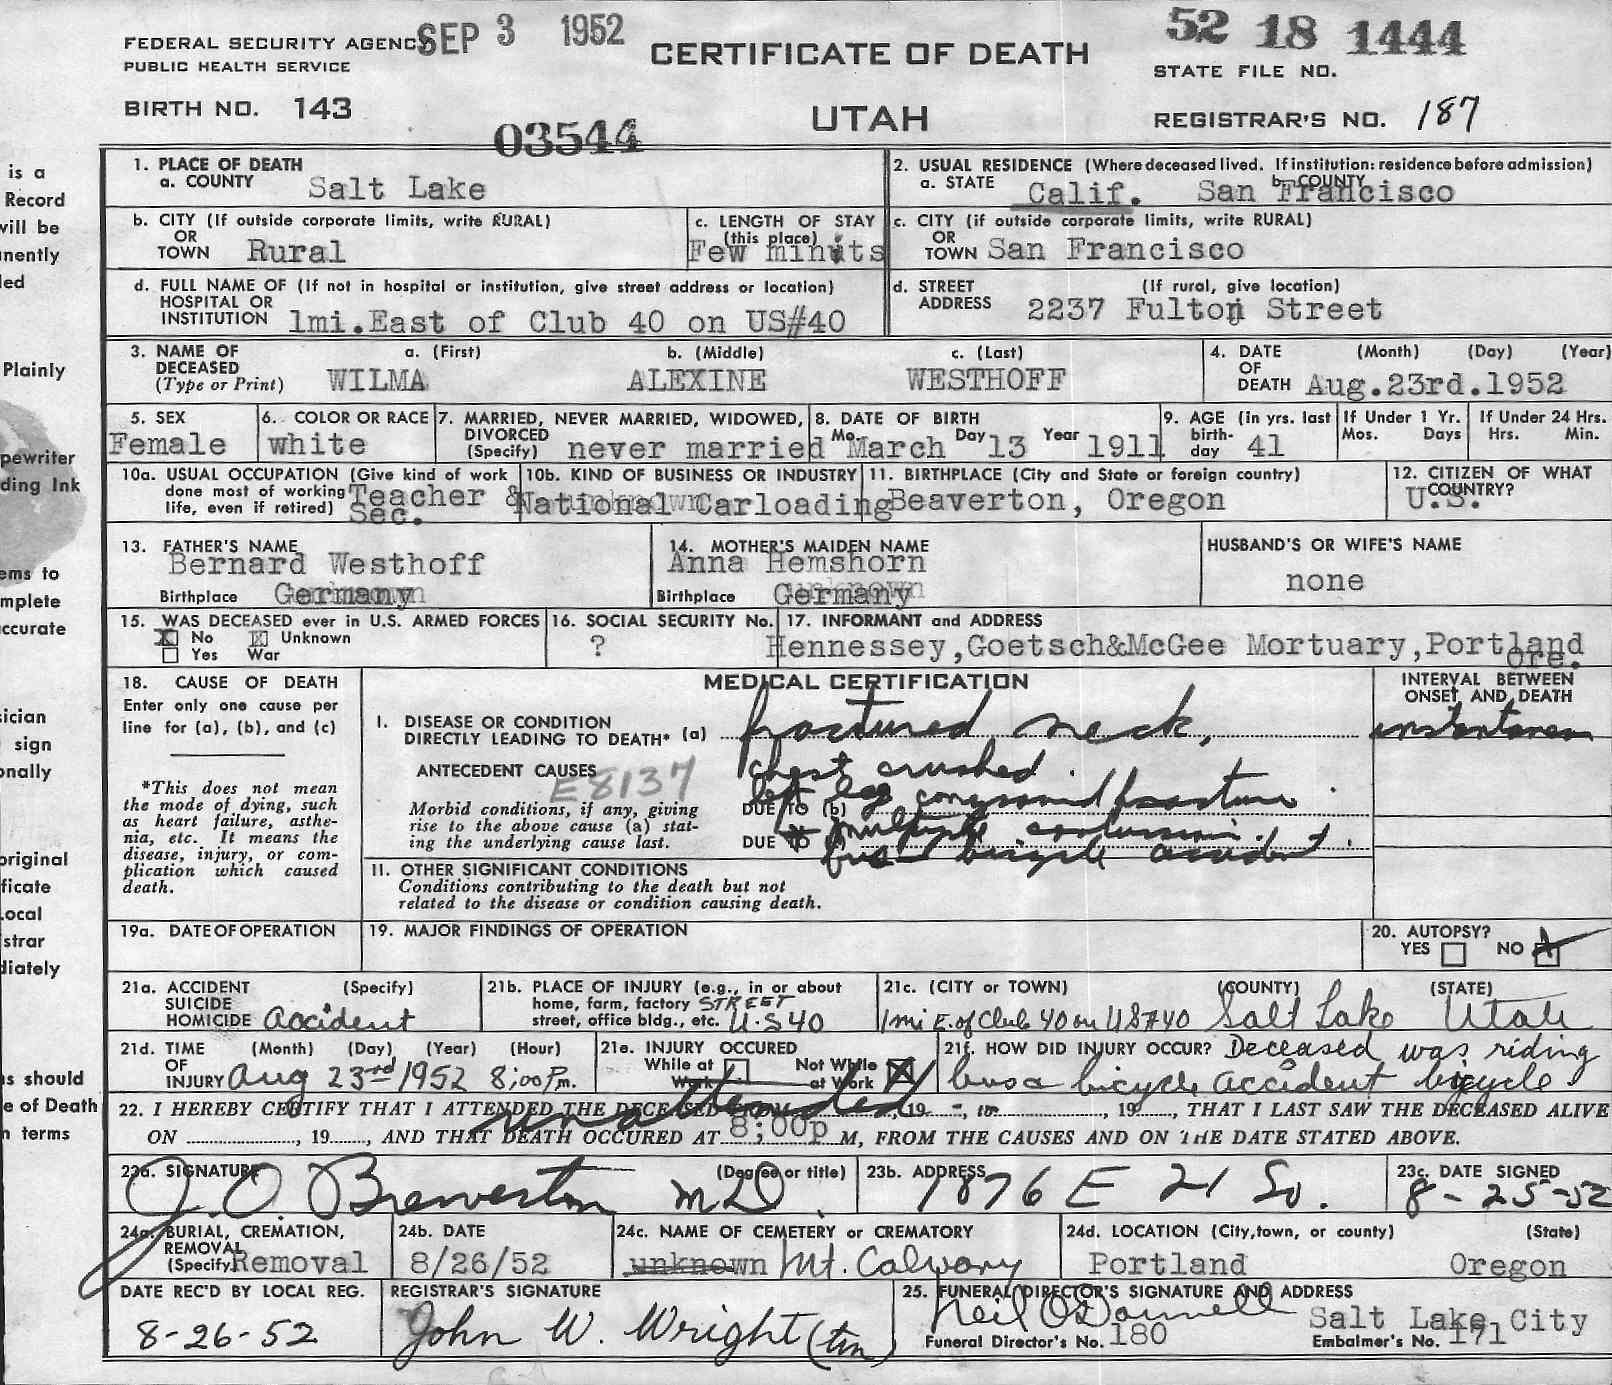 SEP 3 1952
52 18 1444
FEDERAL SECURITY AGENCY
PUBLIC HEALTH SERVICE
CERTIFICATE OF DEATH
STATE FILE NO.
BIRTH NO. 143
03544
UTAH
REGISTRAR'S NO. 187
is a
Record
will be
nently
led
Plainly
pewriter
ding Ink
ems to
mplete
ccurate
ician
sign
onally
original
ficate
Local
strar
diately
ns should
e of Death
n terms
1. PLACE OF DEATH
a. COUNTY Salt Lake
2. USUAL RESIDENCE (Where deceased lived. If institution: residence before admission)
a. STATE Calif. b. COUNTY San Francisco
b. CITY (If outside corporate limits, write RURAL)
OR
TOWN Rural
c. LENGTH OF STAY
(this place)
Few minuts
c. CITY (if outside corporate limits, write RURAL)
OR
TOWN San Francisco
d. FULL NAME OF (If not in hospital or institution, give street address or location)
HOSPITAL OR
INSTITUTION 1mi.East of Club 40 on US#40
d. STREET (If rural, give location)
ADDRESS 2237 Fulton Street
3. NAME OF a. (First) b. (Middle) c. (Last)
DECEASED
(Type or Print) WILMA ALEXINE WESTHOFF
4. DATE (Month) (Day) (Year)
OF
DEATH Aug.23rd.1952
5. SEX
Female
6. COLOR OR RACE
white
7. MARRIED, NEVER MARRIED, WIDOWED,
DIVORCED
(Specify) never married
8. DATE OF BIRTH
Mo. March Day 13 Year 1911
9. AGE (in yrs. last
birth-
day 41
If Under 1 Yr.
Mos. Days
If Under 24 Hrs.
Hrs. Min.
10a. USUAL OCCUPATION (Give kind of work
done most of working
life, even if retired) Teacher &
Sec.
10b. KIND OF BUSINESS OR INDUSTRY
National Carloading
11. BIRTHPLACE (City and State or foreign country)
Beaverton, Oregon
12. CITIZEN OF WHAT
COUNTRY?
U.S.
13. FATHER'S NAME
Bernard Westhoff
Birthplace Germany
14. MOTHER'S MAIDEN NAME
Anna Hemshorn
Birthplace Germany
HUSBAND'S OR WIFE'S NAME
none
15. WAS DECEASED ever in U.S. ARMED FORCES
X No X Unknown
Yes War
16. SOCIAL SECURITY No.
?
17. INFORMANT and ADDRESS
Hennessey,Goetsch&McGee Mortuary,Portland
Ore.
18. CAUSE OF DEATH
Enter only one cause per
line for (a), (b), and (c)
*This does not mean
the mode of dying, such
as heart failure, asthe-
nia, etc. It means the
disease, injury, or com-
plication which caused
death.
MEDICAL CERTIFICATION
INTERVAL BETWEEN
ONSET AND DEATH
I. DISEASE OR CONDITION
DIRECTLY LEADING TO DEATH* (a) fractured neck,
ANTECEDENT CAUSES chest crushed.
E8137
Morbid conditions, if any, giving
rise to the above cause (a) stat-
ing the underlying cause last.
DUE TO (b) left leg compound fracture
multiple
DUE TO bus bicycle accident.
11. OTHER SIGNIFICANT CONDITIONS
Conditions contributing to the death but not
related to the disease or condition causing death.
19a. DATE OF OPERATION
19. MAJOR FINDINGS OF OPERATION
20. AUTOPSY?
YES NO X
21a. ACCIDENT (Specify)
SUICIDE
HOMICIDE Accident
21b. PLACE OF INJURY (e.g., in or about
home, farm, factory STREET
street, office bldg., etc. U.S 40
21c. (CITY or TOWN) (COUNTY) (STATE)
1 mi E. of Club 40 on US#40 Salt Lake Utah
21d. TIME (Month) (Day) (Year) (Hour)
OF
INJURY Aug 23rd 1952 8;00 Pm.
21e. INJURY OCCURED
While at Not While
Work at Work X
21f. HOW DID INJURY OCCUR? Deceased was riding
bus & bicycle accident bicycle
22. I HEREBY CERTIFY THAT I ATTENDED THE DECEASED FROM unattended, 19 , to , 19 , THAT I LAST SAW THE DECEASED ALIVE
ON , 19 , AND THAT DEATH OCCURED AT 8;00p M, FROM THE CAUSES AND ON THE DATE STATED ABOVE.
23a. SIGNATURE (Degree or title)
J. O. Brewerton M.D.
23b. ADDRESS
1876 E 21 So.
23c. DATE SIGNED
8-25-52
24a. BURIAL, CREMATION,
REMOVAL
(Specify) Removal
24b. DATE
8/26/52
24c. NAME OF CEMETERY or CREMATORY
unknown Mt. Calvary
24d. LOCATION (City, town, or county) (State)
Portland Oregon
DATE REC'D BY LOCAL REG.
8-26-52
REGISTRAR'S SIGNATURE
John W. Wright
25. FUNERAL DIRECTOR'S SIGNATURE AND ADDRESS
Neil O'Donnell Salt Lake City
Funeral Director's No. 180 Embalmer's No. 171